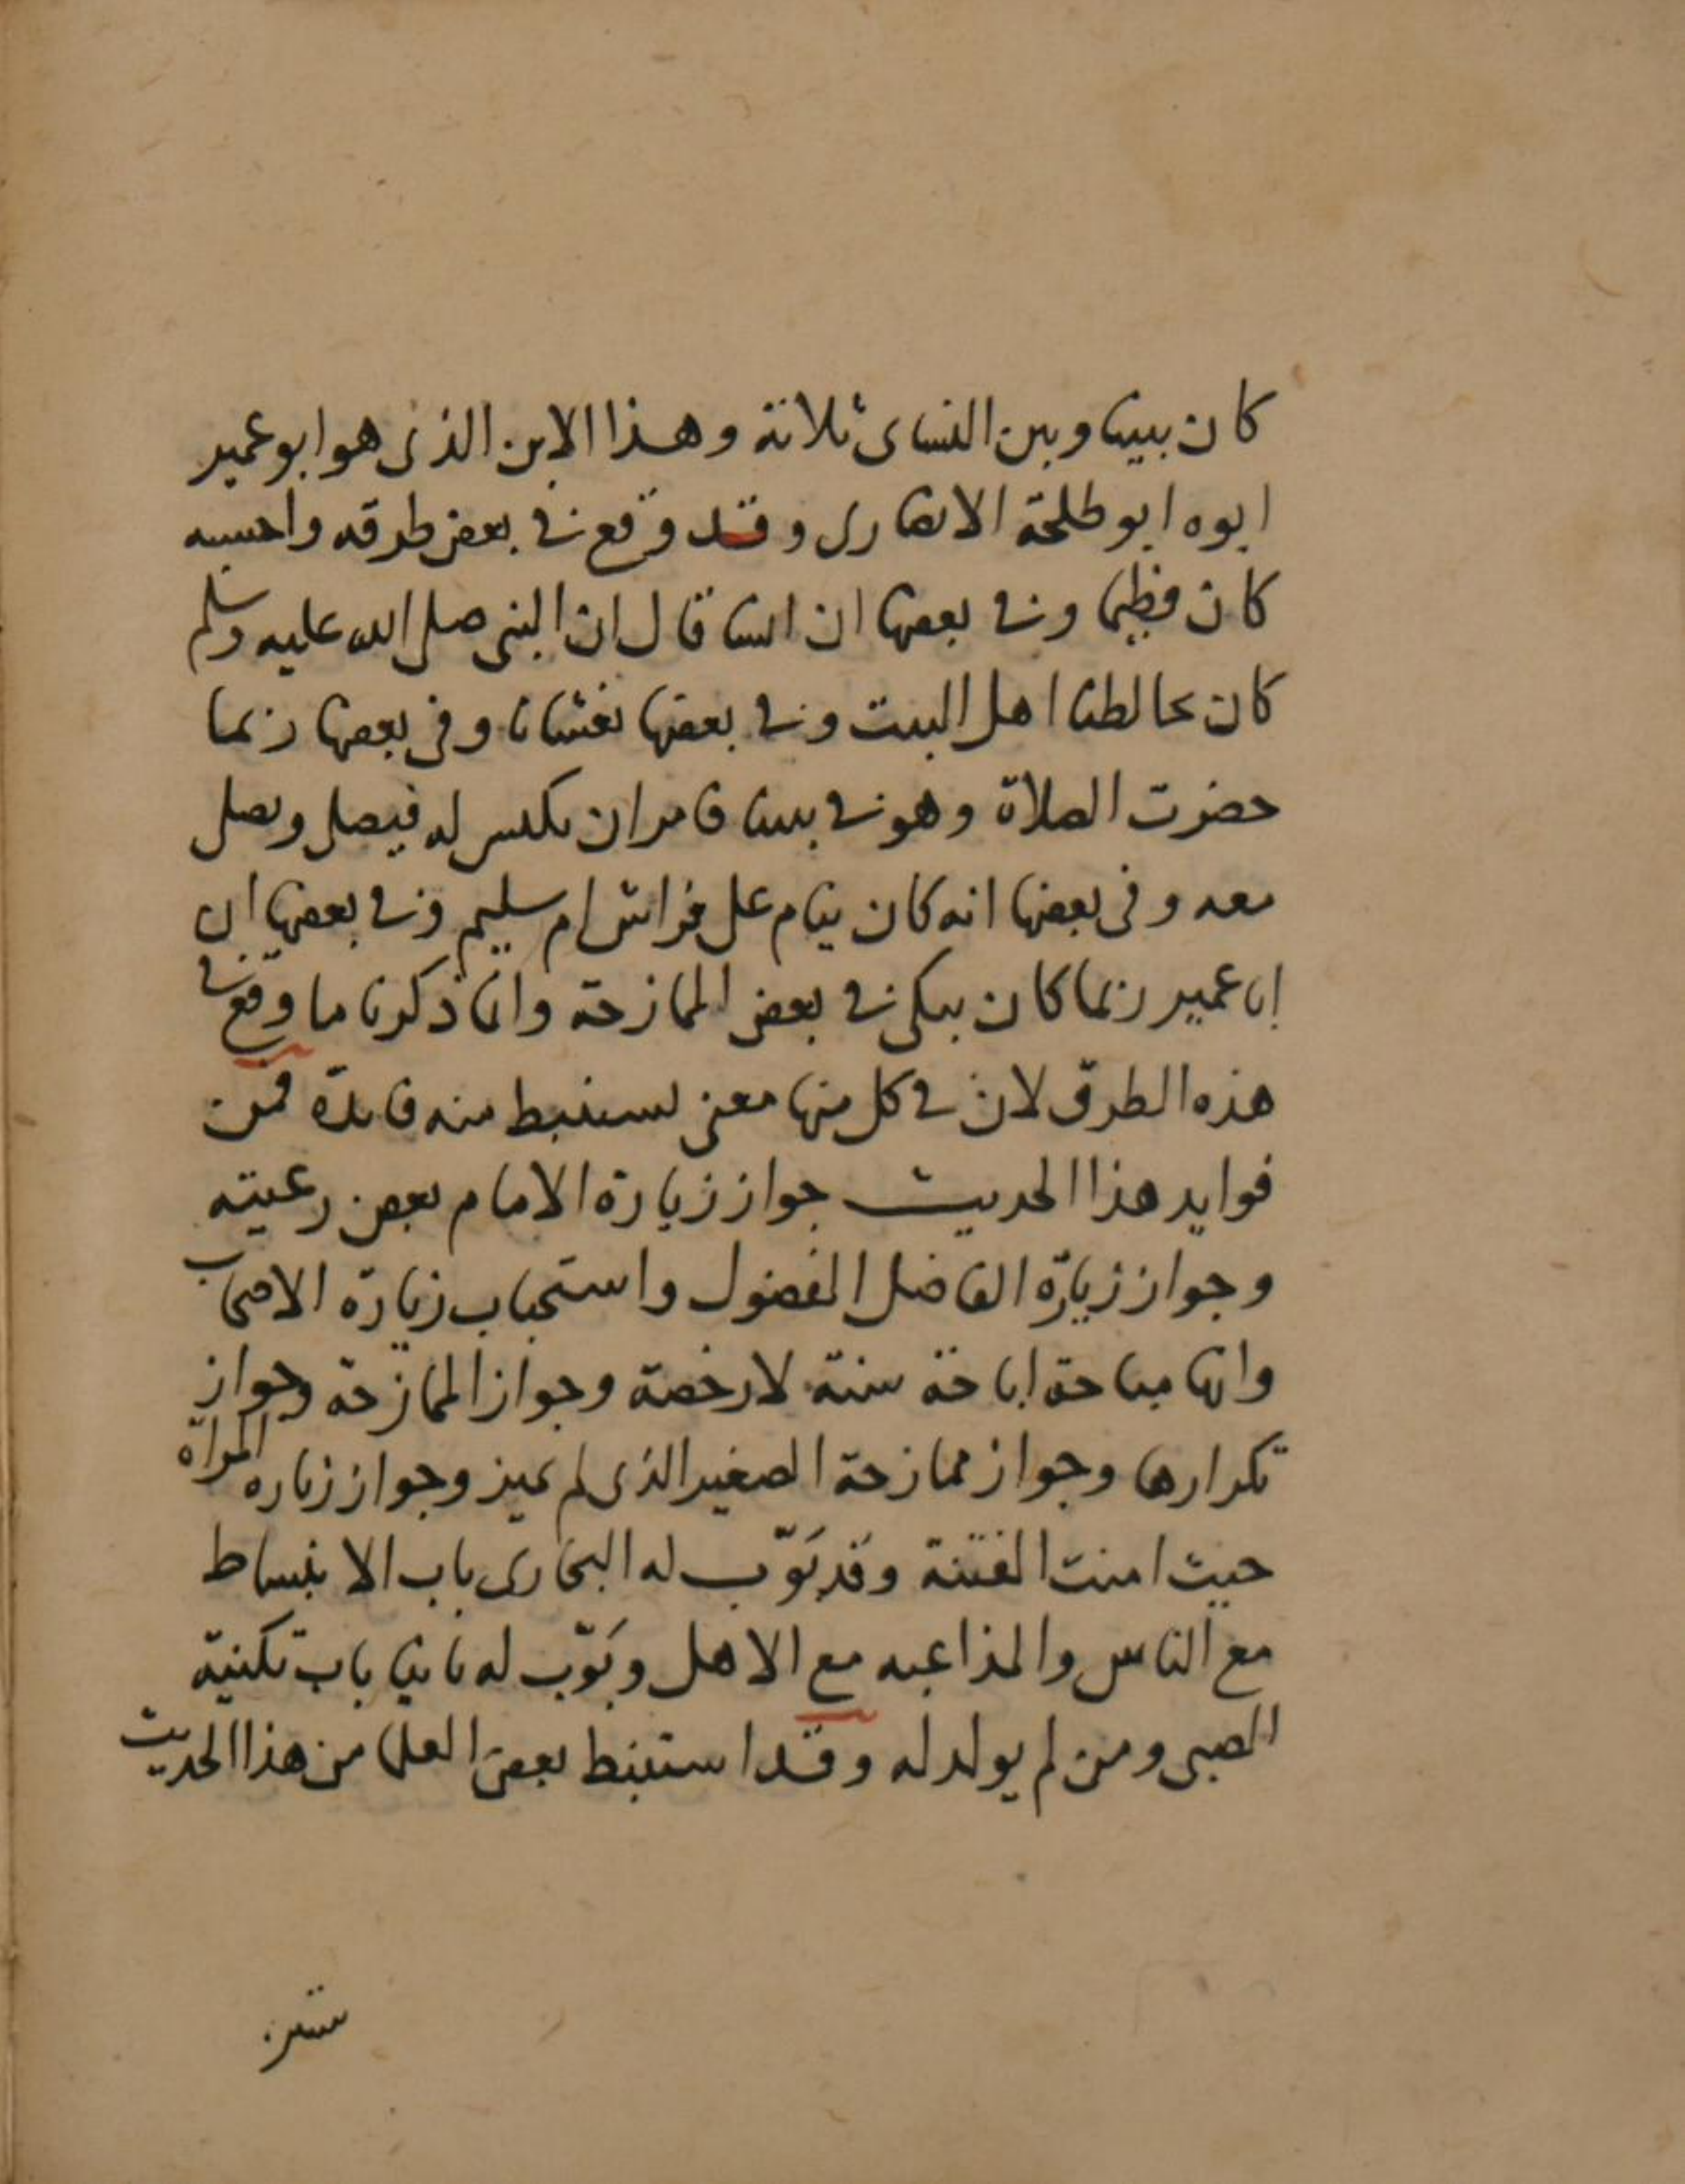 كان بيننا وبين النساى ثلاثة وهذا الابن الذى هو ابو عمير
ابوه ابو طلحة الانصارى وقد وقع فى بعض طرقه واحسبه
كان فطيما وفى بعضها ان انسا قال ان النبى صلى الله عليه وسلم
كان يخالطنا اهل البيت وفى بعضها يغشانا وفى بعضها ربما
حضرت الصلاة وهو فى بيتنا فامر ان يكنس له فيصلى ونصلى
معه وفى بعضها انه كان ينام على فراش ام سليم وفى بعضها ان
ابا عمير ربما كان يبكى فى بعض الممازحة وانما ذكرنا ما وقع فى
هذه الطرق لان فى كل منها معنى يستنبط منه فايدة فمن
فوايد هذا الحديث جواز زيارة الامام بعض رعيته
وجواز زيارة الفاضل المفضول واستحباب زيارة الاصحاب
وانها مباحة اباحة سنة لا رخصة وجواز الممازحة وجواز
تكرارها وجواز ممازحة الصغير الذى لم يميز وجواز زياره المراة
حيث امنت الفتنة وقد بَوّب له البخارى باب الانبساط
مع الناس والمداعبه مع الاهل وبَوّب له ثانيا باب تكنية
الصبى ومن لم يولد له وقد استنبط بعض العلما من هذا الحديث
ستين